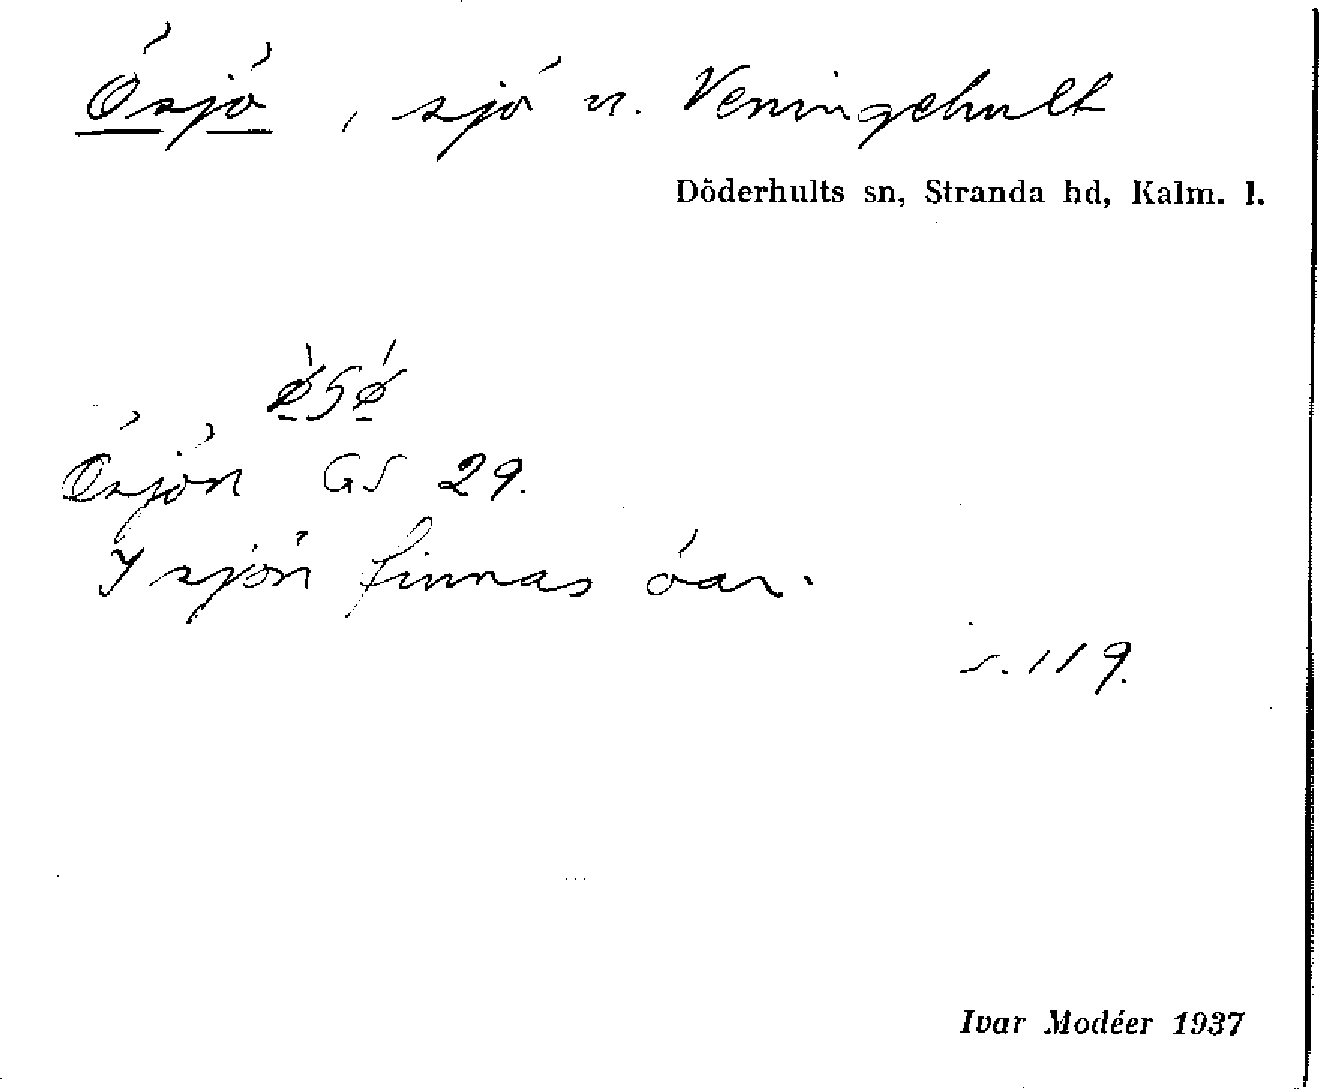 Ösjö, sjö n. Veningehult
Döderhults sn, Stranda hd, Kalm. l.
Ösjön GS 29.
I sjön finnas öar.
s. 119.
Ivar Modéer 1937